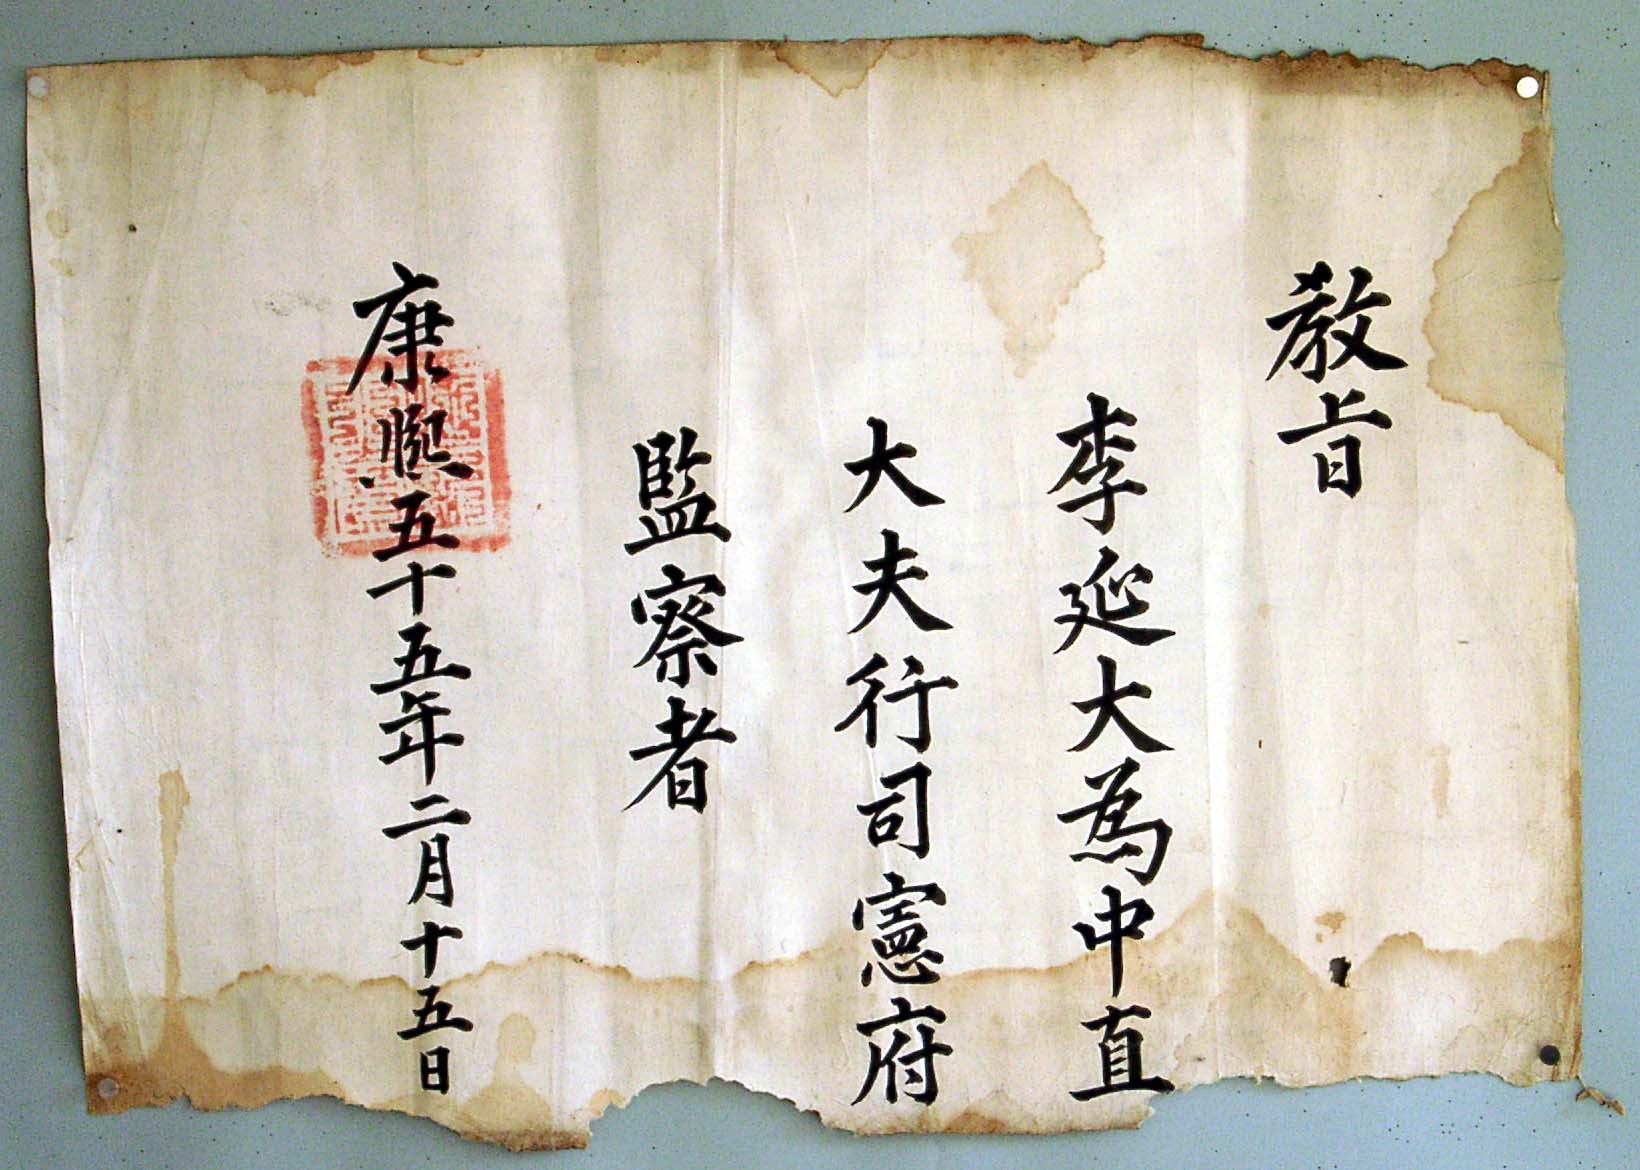 教旨
李延大為中直
大夫行司憲府
監察者
康熙五十五年二月十五日